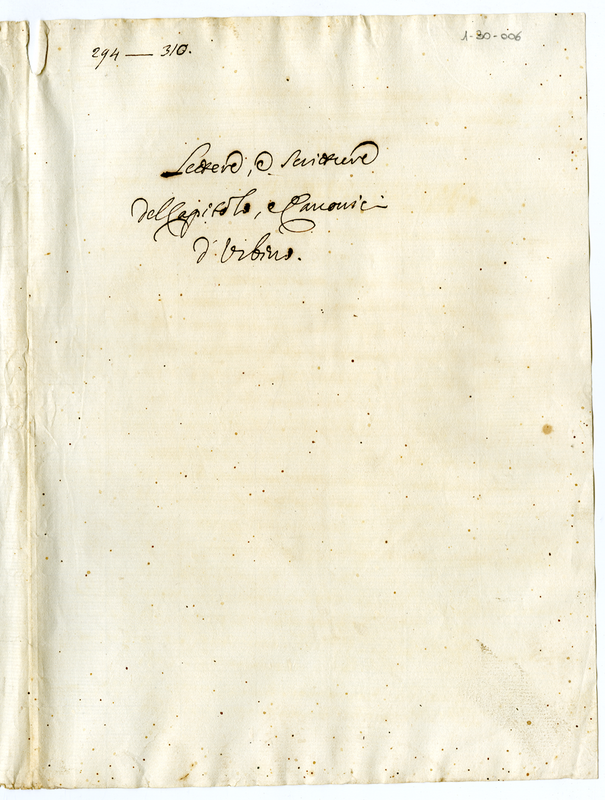 294 — 310.
1-30-006
Lettere, e Scritture
del Capitolo, e Canonici
d'Urbino.